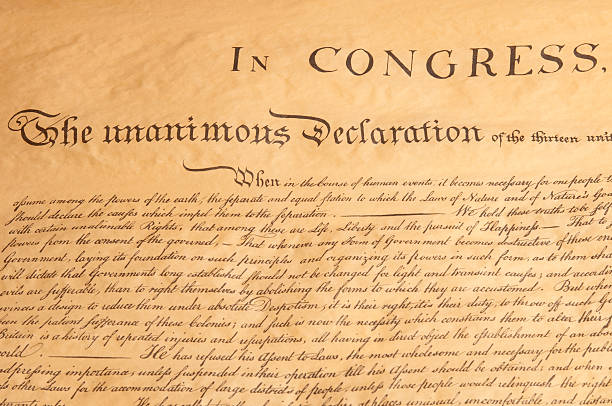 In CONGRESS,
The unanimous Declaration of the thirteen unit
When in the Course of human events, it becomes necessary for one people to
assume among the powers of the earth, the separate and equal station to which the Laws of Nature and of Nature's Go
should declare the causes which impel them to the separation. We hold these truths to be self
with certain unalienable Rights, that among these are Life, Liberty and the pursuit of Happiness.— That to
powers from the consent of the governed,— That whenever any Form of Government becomes destructive of these en
Government, laying its foundation on such principles and organizing its powers in such form, as to them sha
will dictate that Governments long established should not be changed for light and transient causes; and accord
evils are sufferable, than to right themselves by abolishing the forms to which they are accustomed. But whe
evinces a design to reduce them under absolute Despotism, it is their right, it is their duty, to throw off such G
been the patient sufferance of these Colonies; and such is now the necessity which constrains them to alter their f
Britain is a history of repeated injuries and usurpations, all having in direct object the establishment of an abso
world. He has refused his Assent to Laws, the most wholesome and necessary for the publi
and pressing importance, unless suspended in their operation till his Assent should be obtained; and when
pass other Laws for the accommodation of large districts of people, unless those people would relinquish the right
He has called together legislative bodies at places unusual, uncomfortable, and distan